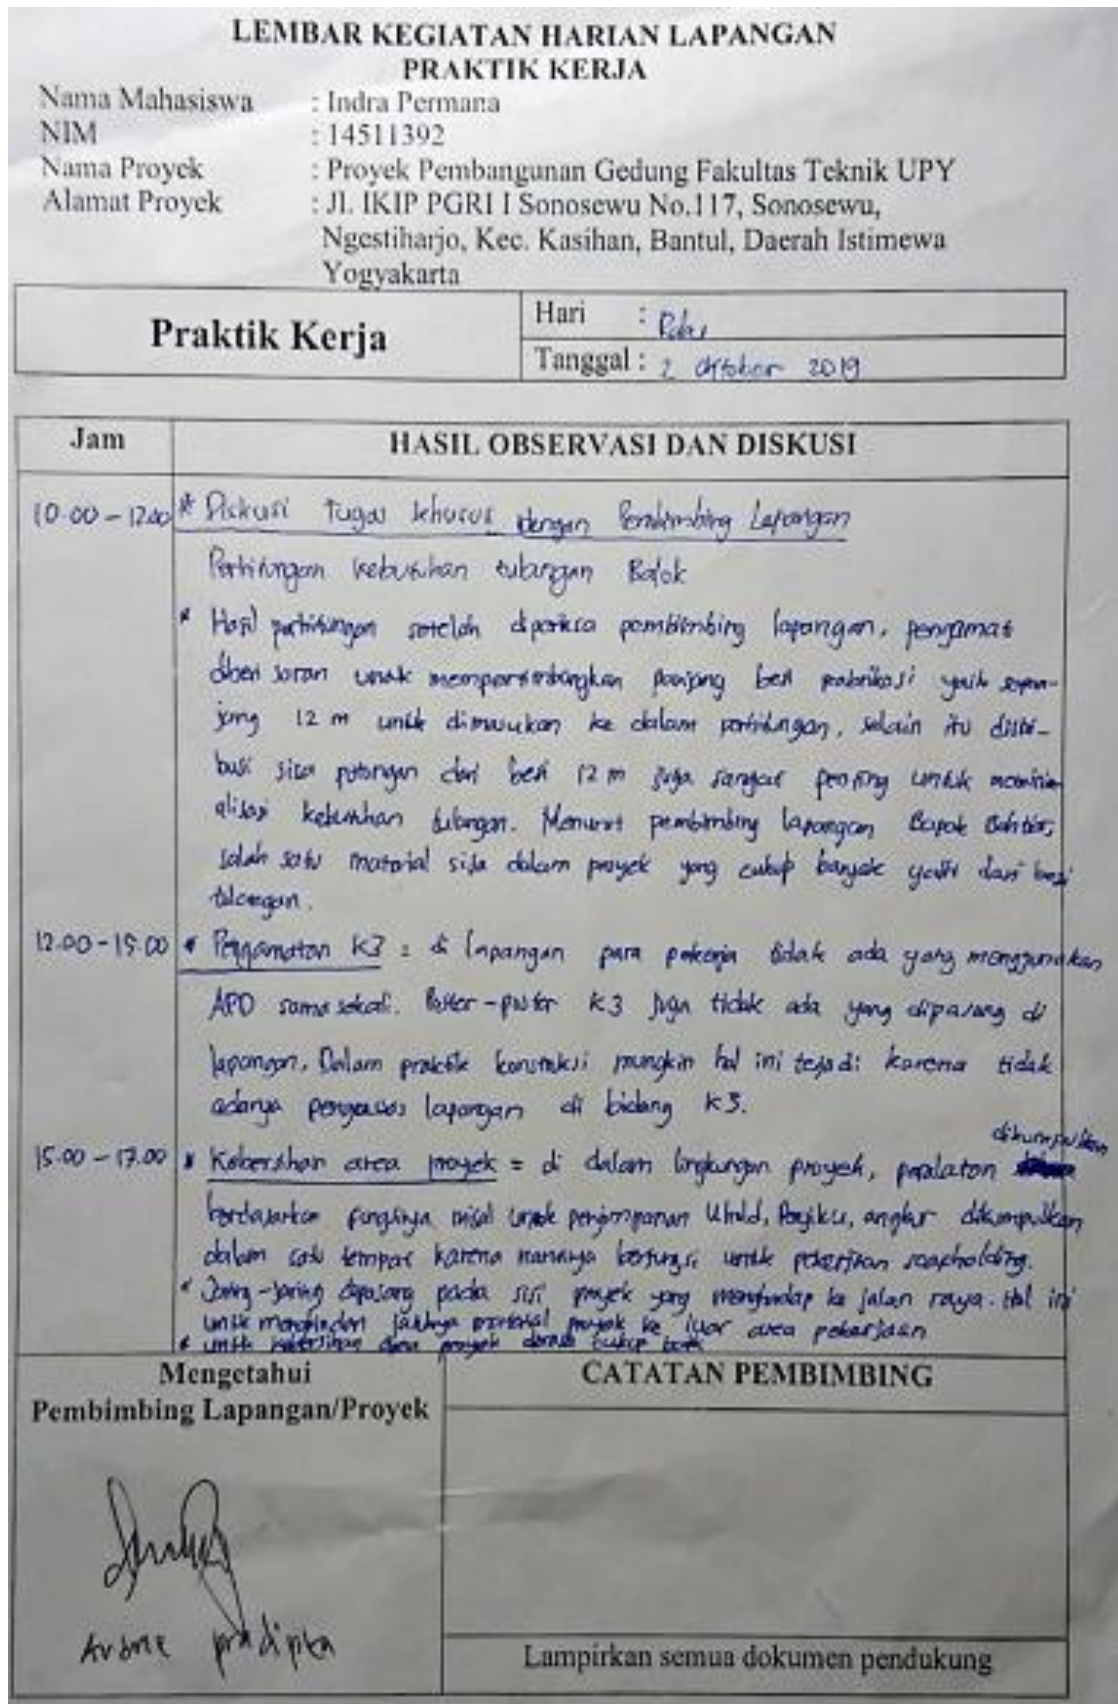 LEMBAR KEGIATAN HARIAN LAPANGAN
PRAKTIK KERJA
Nama Mahasiswa : Indra Permana
NIM : 14511392
Nama Proyek : Proyek Pembangunan Gedung Fakultas Teknik UPY
Alamat Proyek : Jl. IKIP PGRI I Sonosewu No.117, Sonosewu,
Ngestiharjo, Kec. Kasihan, Bantul, Daerah Istimewa
Yogyakarta
Praktik Kerja
Hari : Rabu
Tanggal : 2 Oktober 2019
Jam HASIL OBSERVASI DAN DISKUSI
10.00 - 12.00 * Diskusi Tugas khusus dengan Pembimbing Lapangan
Perhitungan kebutuhan tulangan Balok
* Hasil perhitungan setelah diperiksa pembimbing lapangan, pengamat
diberi saran untuk mempertimbangkan panjang besi pabrikasi yaitu sepan-
jang 12 m untuk dimasukan ke dalam perhitungan, selain itu distri-
busi sisa potongan dari besi 12 m juga sangat penting untuk meminim
alisasi kebutuhan tulangan. Menurut pembimbing lapangan Bapak
salah satu material sisa dalam proyek yang cukup banyak yaitu dari besi
tulangan.
12.00 - 15.00 * Pengamatan K3 = di lapangan para pekerja tidak ada yang menggunakan
APD sama sekali. Poster-poster K3 juga tidak ada yang dipasang di
lapangan. Dalam praktik konstruksi mungkin hal ini terjadi karena tidak
adanya pengawas lapangan di bidang K3.
dikumpulkan
15.00 - 17.00 * Kebersihan area proyek = di dalam lingkungan proyek, peralatan
berdasarkan fungsinya misal untuk penyimpanan dikumpulkan
dalam satu tempat karena nantinya berfungsi untuk pekerjaan scapholding.
* Jaring-jaring dipasang pada sisi proyek yang menghadap ke jalan raya. Hal ini
untuk menghindari jatuhnya material proyek ke luar area pekerjaan
* untuk kebersihan area proyek cukup baik
Mengetahui
Pembimbing Lapangan/Proyek
CATATAN PEMBIMBING
pradipta
Lampirkan semua dokumen pendukung